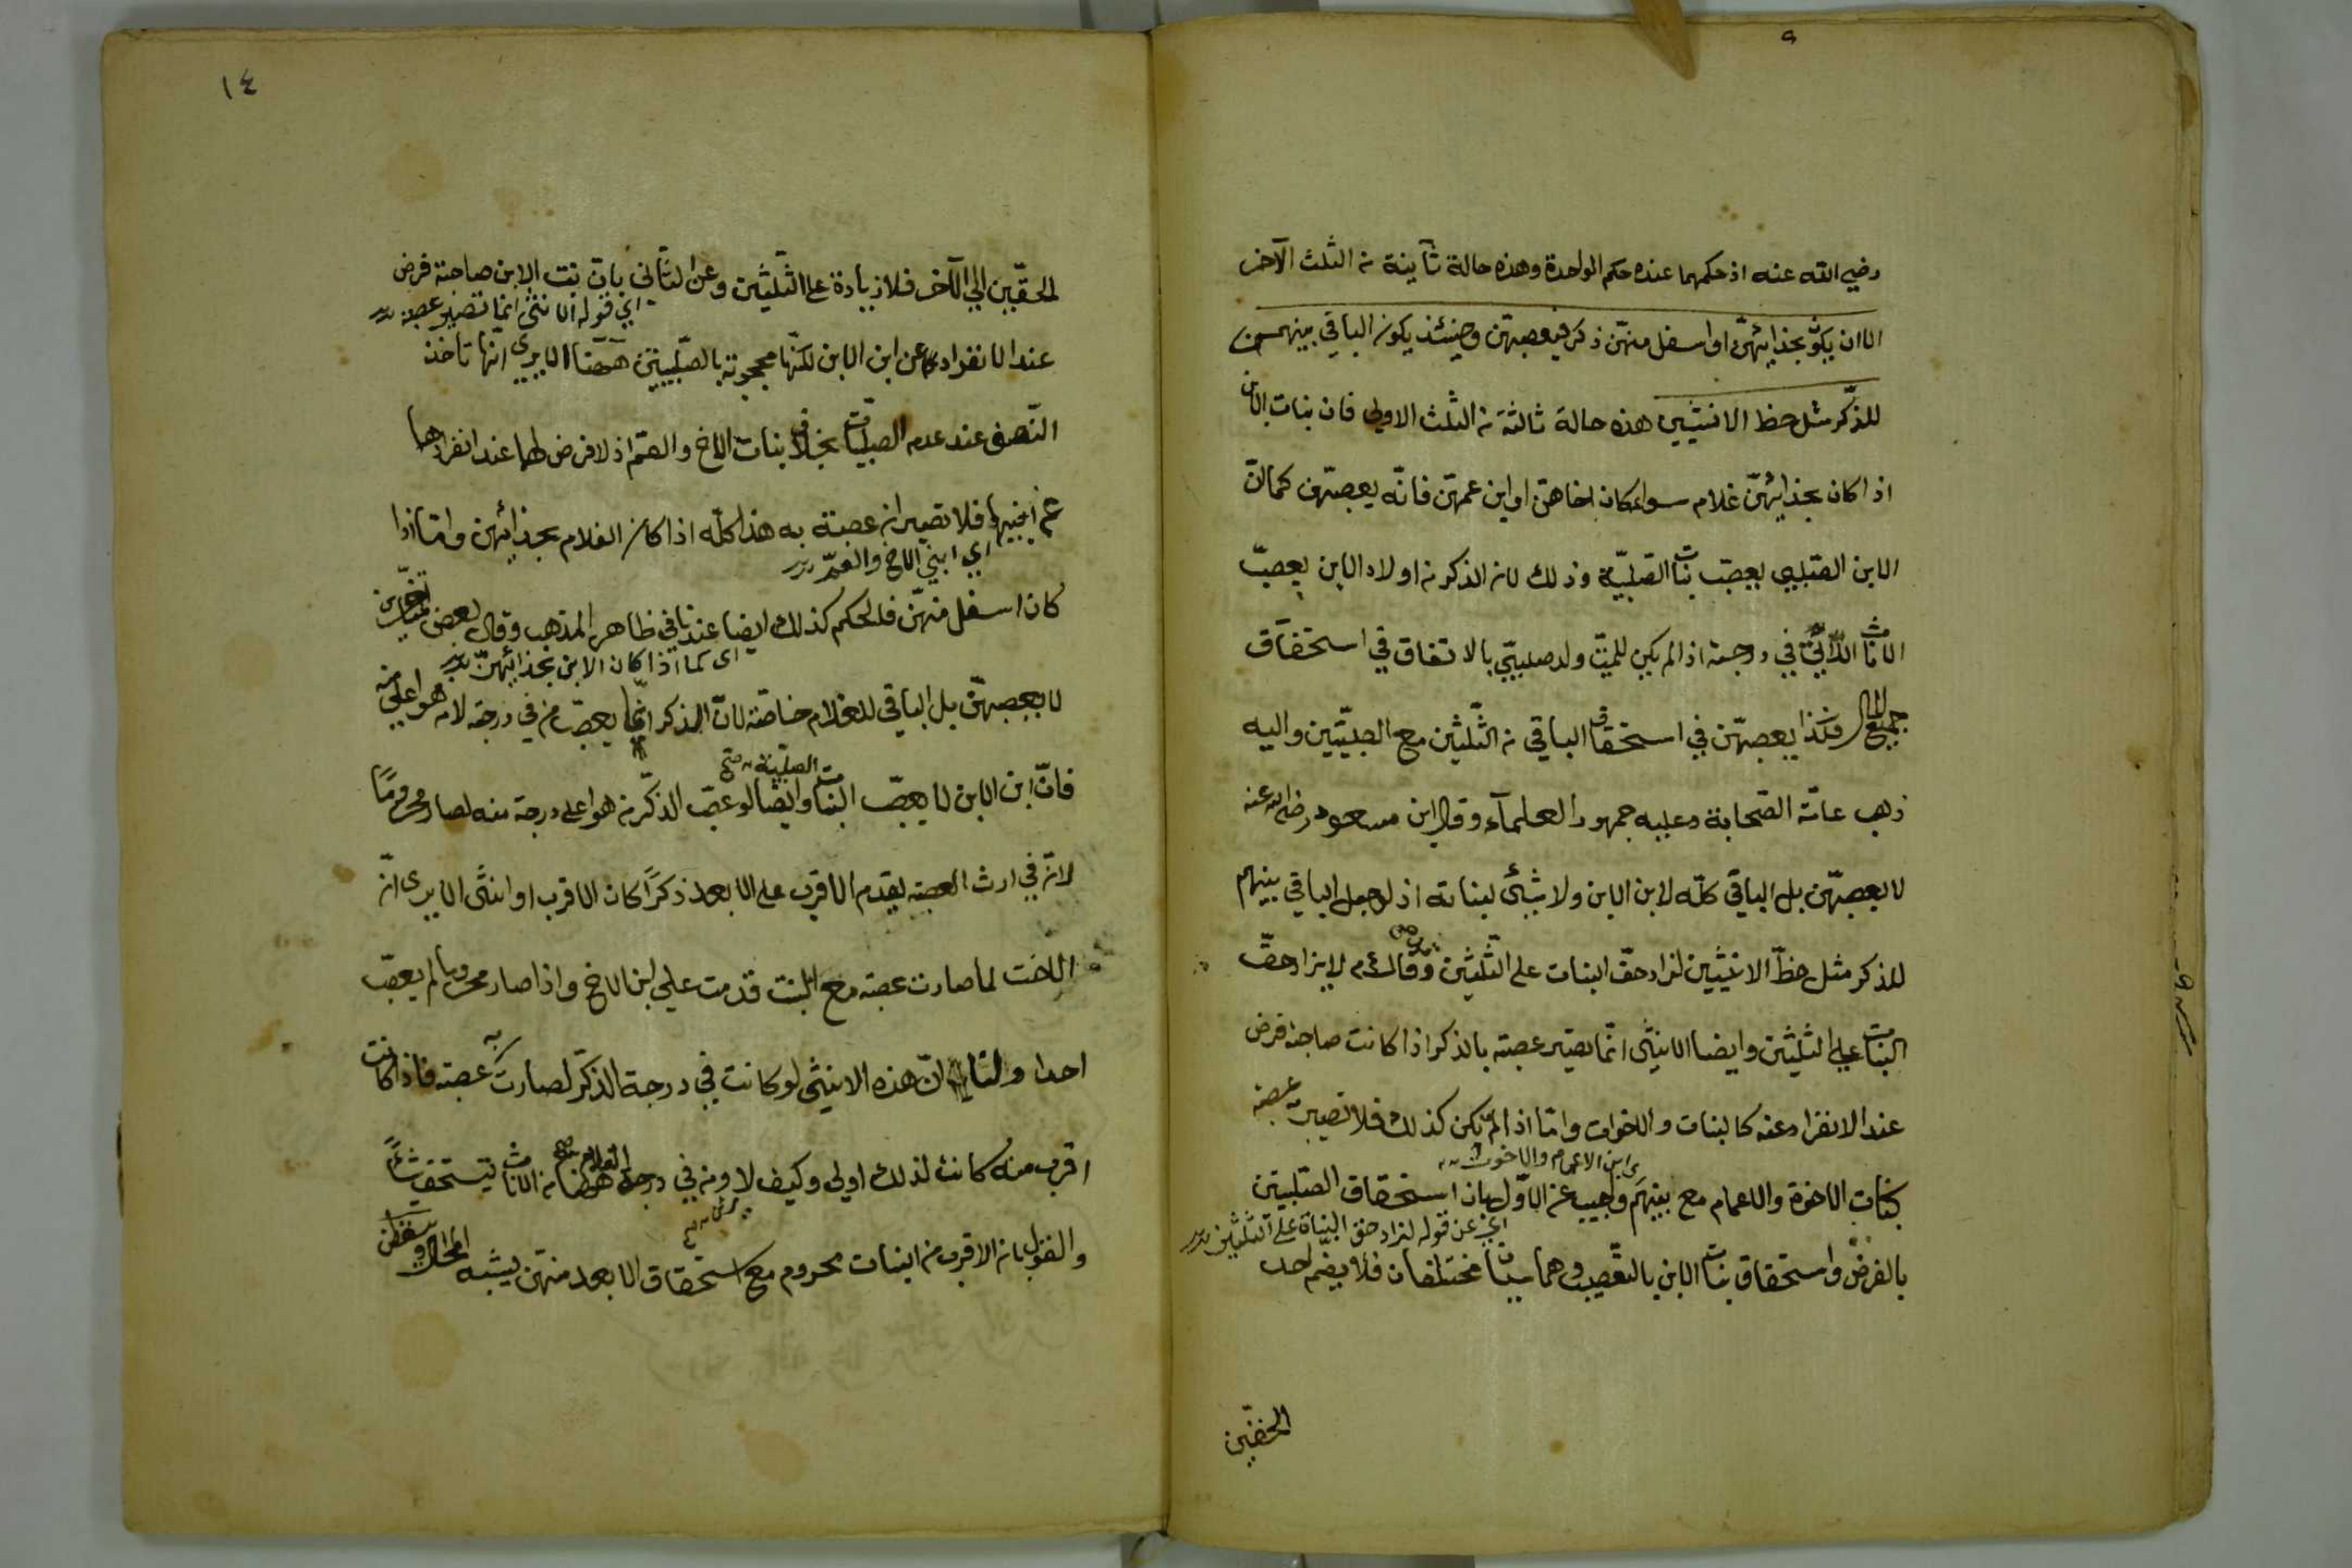 رضي الله عنه اذ حكمهما عنده حكم الواحدة وهذه حالة ثانية من الثلث الآخر
الا ان يكون بحذائهن او اسفل منهن ذكر فيعصبهن وحينئذ يكون الباقي بينهم
للذكر مثل حظ الانثيين هذه حالة ثالثة من الثلث الاولى فان بنات الابن
اذا كان بحذائهن غلام سواء كان اخاهن او ابن عمهن فانه يعصبهن كما ان
الابن الصلبي يعصب بنات الصلبية وذلك لان الذكر من اولاد الابن يعصب
الاناث اللاتي في درجته اذا لم يكن للميت ولد صلبي بالاتفاق في استحقاق
جميع المال فكذا يعصبهن في استحقاق الباقي من الثلثين مع الصلبيتين واليه
ذهب عامة الصحابة وعليه جمهور العلماء وقال ابن مسعود رضي الله عنه
لا يعصبهن بل الباقي كله لابن الابن ولا شيء لبناته اذ لو جعل الباقي بينهم
للذكر مثل حظ الانثيين لزاد حق البنات على الثلثين وقال عم لا يزاد حق
البنات على الثلثين وايضا الانثى انما تصير عصبة بالذكر اذا كانت صاحبة فرض
عند الانفراد عنه كالبنات والاخوات واما اذا لم تكن كذلك فلا تصير به عصبة
ابن الاعمام والاخوة
كبنات الاخوة والاعمام مع بنيهم واجيب عن الاول بان استحقاق الصلبيتين
اي عن قوله لزاد حق البنات على الثلثين
بالفرض واستحقاق بنات الابن بالتعصيب وهما سببان مختلفان فلا يضم احد
الحقين
١٤
الحقين الى الآخر فلا زيادة على الثلثين وعن الثاني بان بنت الابن صاحبة فرض
اي قوله الانثى انما تصير عصبة
عند الانفراد عن ابن الابن لكنها محجوبة بالصلبيتين ههنا الا يرى انها تأخذ
النصف عند عدم الصلبيات بخلاف بنات الاخ والعم اذ لا فرض لهما عند انفرادهما
عن ابنيهما فلا تصيران عصبة به هذا كله اذا كان الغلام بحذائهن واما اذا
اي ابني الاخ والعم
كان اسفل منهن فالحكم كذلك ايضا عندنا في ظاهر المذهب وقال بعض المتأخرين
اى كما اذا كان الابن بحذائهن
لا يعصبهن بل الباقي للغلام خاصة لان الذكر انما يعصب من في درجته لا من هو اعلى منه
الصلبية صح
فان ابن الابن لا يعصب البنات وايضا لو عصب الذكر من هو اعلى درجة منه لصار محروما
لانه في ارث العصبة يقدم الاقرب على الابعد ذكرا كان الاقرب او انثى الا يرى ان
الاخت لما صارت عصبة مع البنت قدمت على ابن الاخ واذا صار محروما لم يعصب
احدا ولنا ان هذه الانثى لو كانت في درجة الذكر لصارت به عصبة فاذا كانت
اقرب منه كانت لذلك اولى وكيف لا ومن في درجة الغلام ههنا من الاناث يستحق شيئا
والقول بان الاقرب من البنات محروم مع استحقاق الابعد منهن يشبه المحال